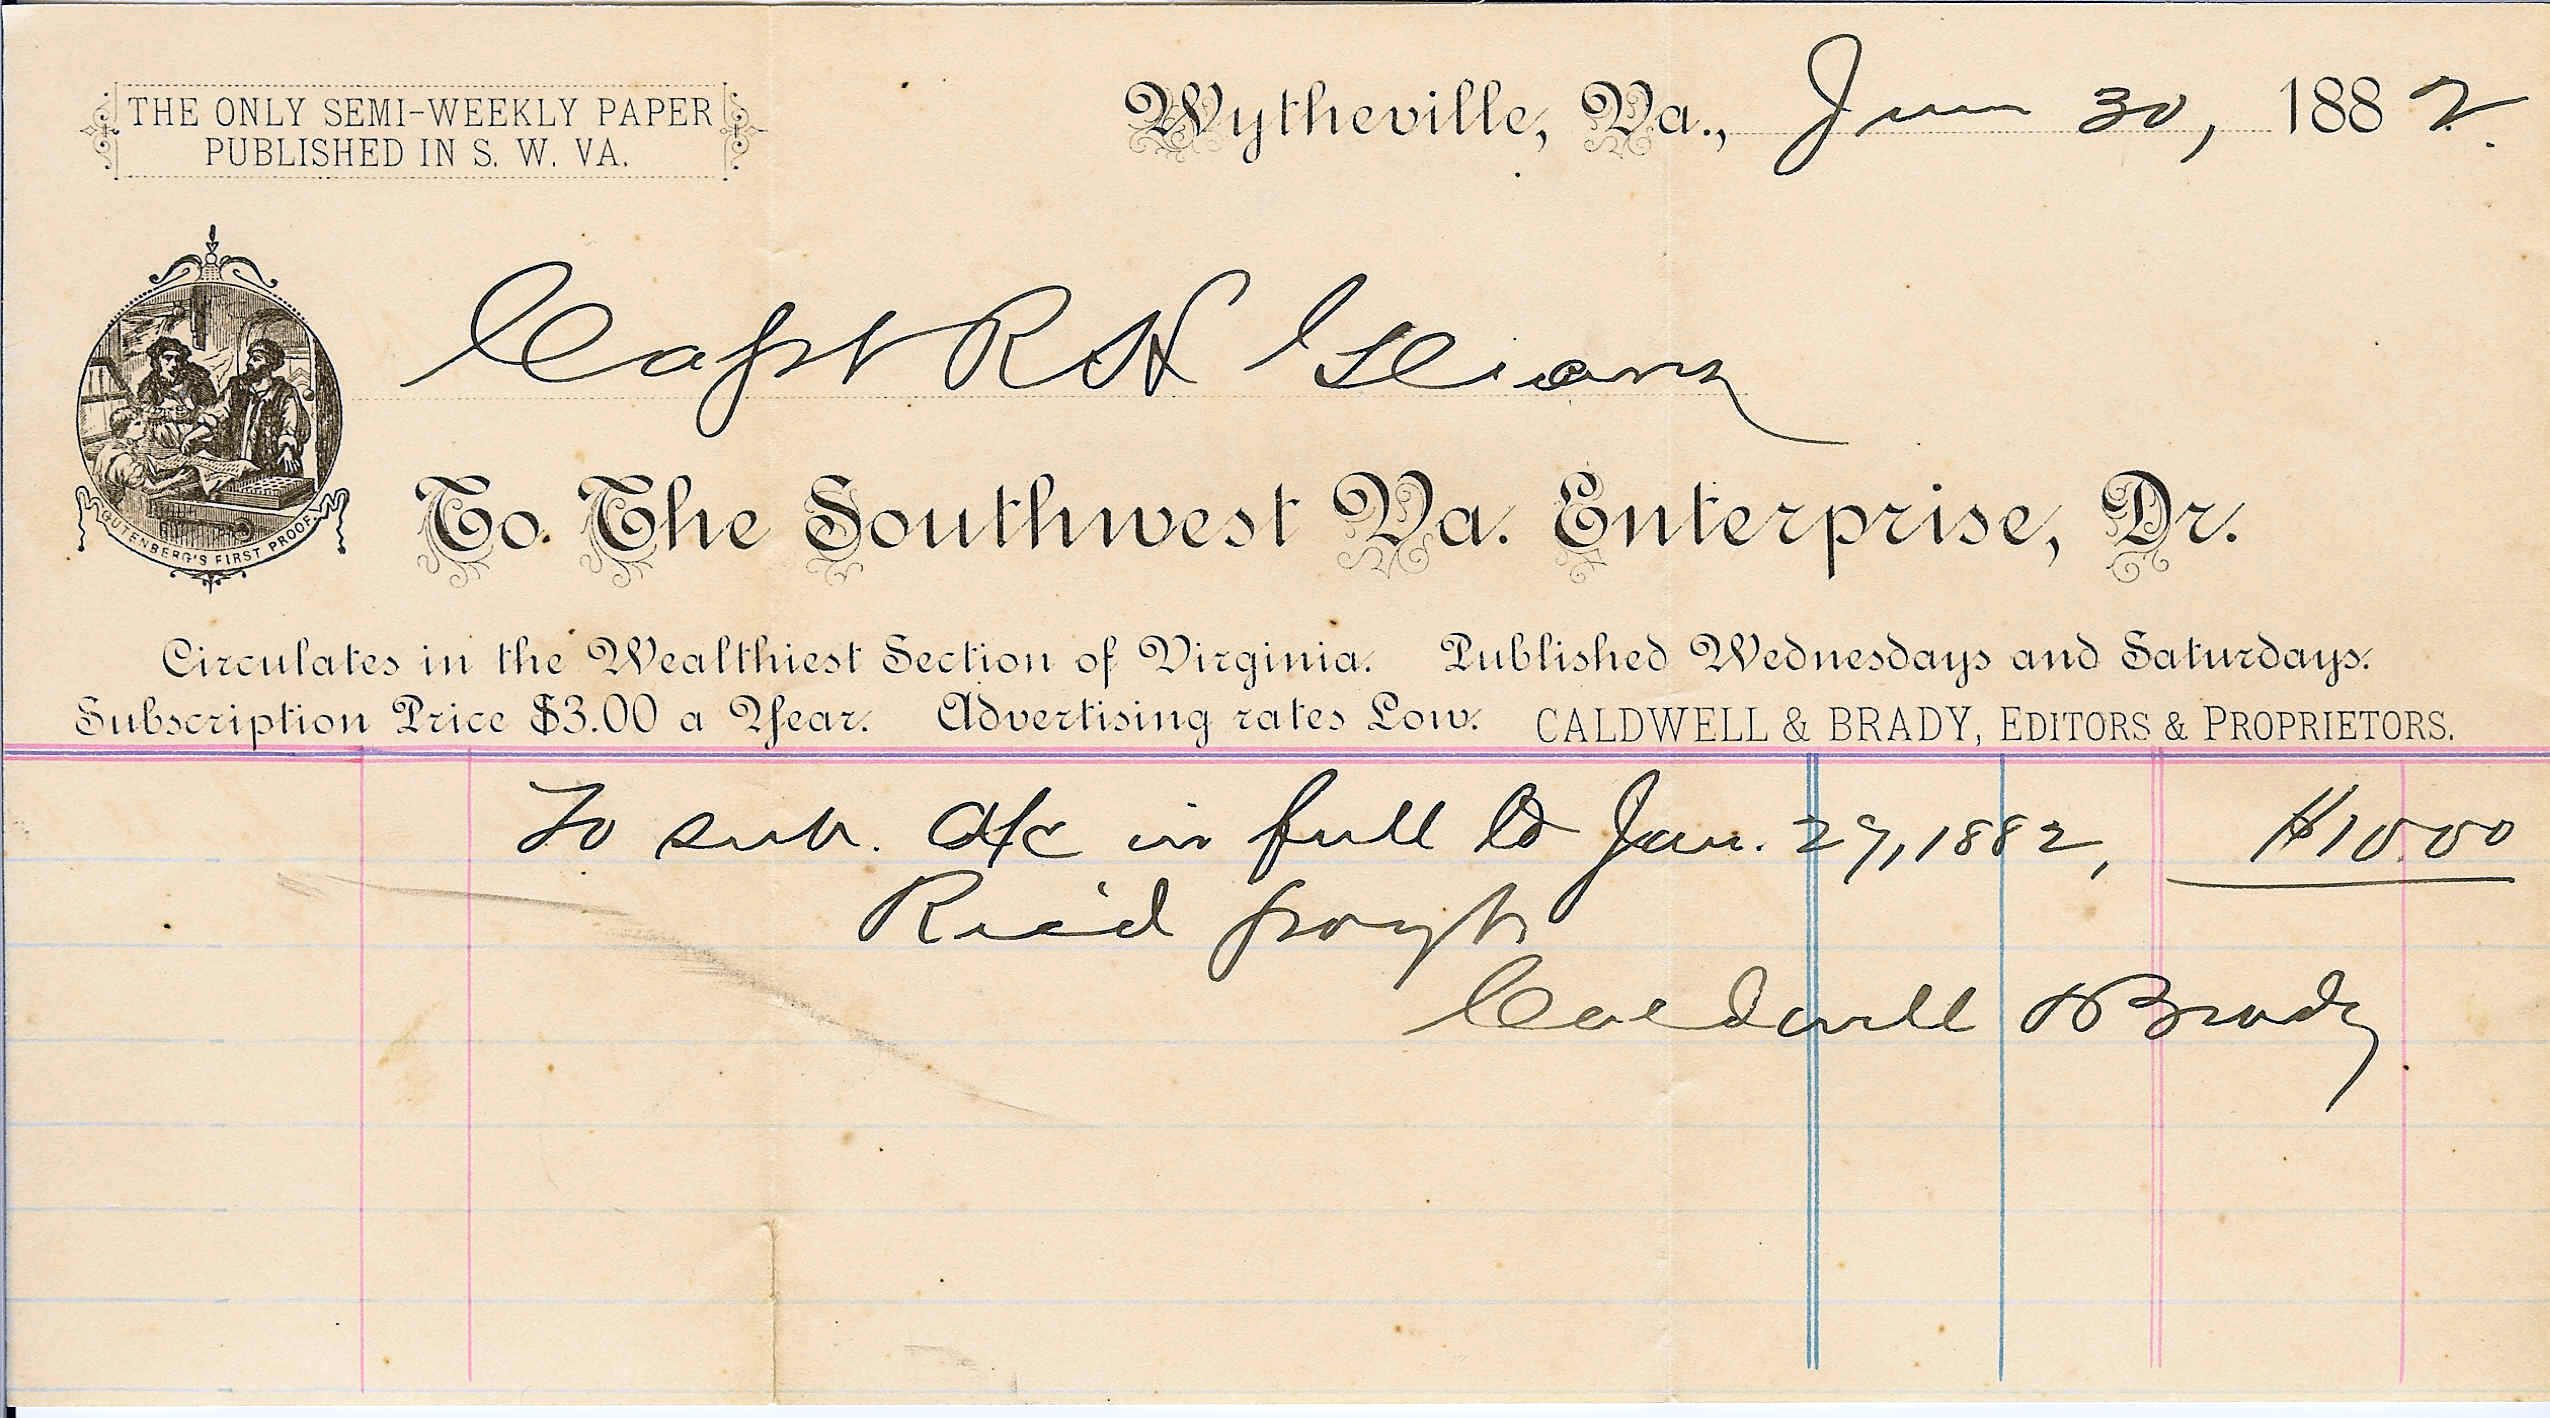 THE ONLY SEMI-WEEKLY PAPER
PUBLISHED IN S. W. VA.
Wytheville, Va., June 30, 1882.
Capt R H
GUTENBERG'S FIRST PROOF
To The Southwest Va. Enterprise, Dr.
Circulates in the Wealthiest Section of Virginia. Published Wednesdays and Saturdays.
Subscription Price $3.00 a Year. Advertising rates Low. CALDWELL & BRADY, EDITORS & PROPRIETORS.
To sub. a/c in full to Jan. 29, 1882, $10.00
Rec'd payt
Caldwell & Brady